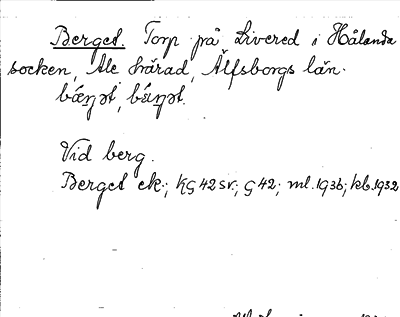 Berget. Torp på Livered i Hålanda
socken, Ale härad, Älfsborgs län.
bæ̀ŋət, bæ̀ŋət.
Vid berg.
Berget ek.; KG 42 sv.; G 42; ml. 1936; kb. 1932